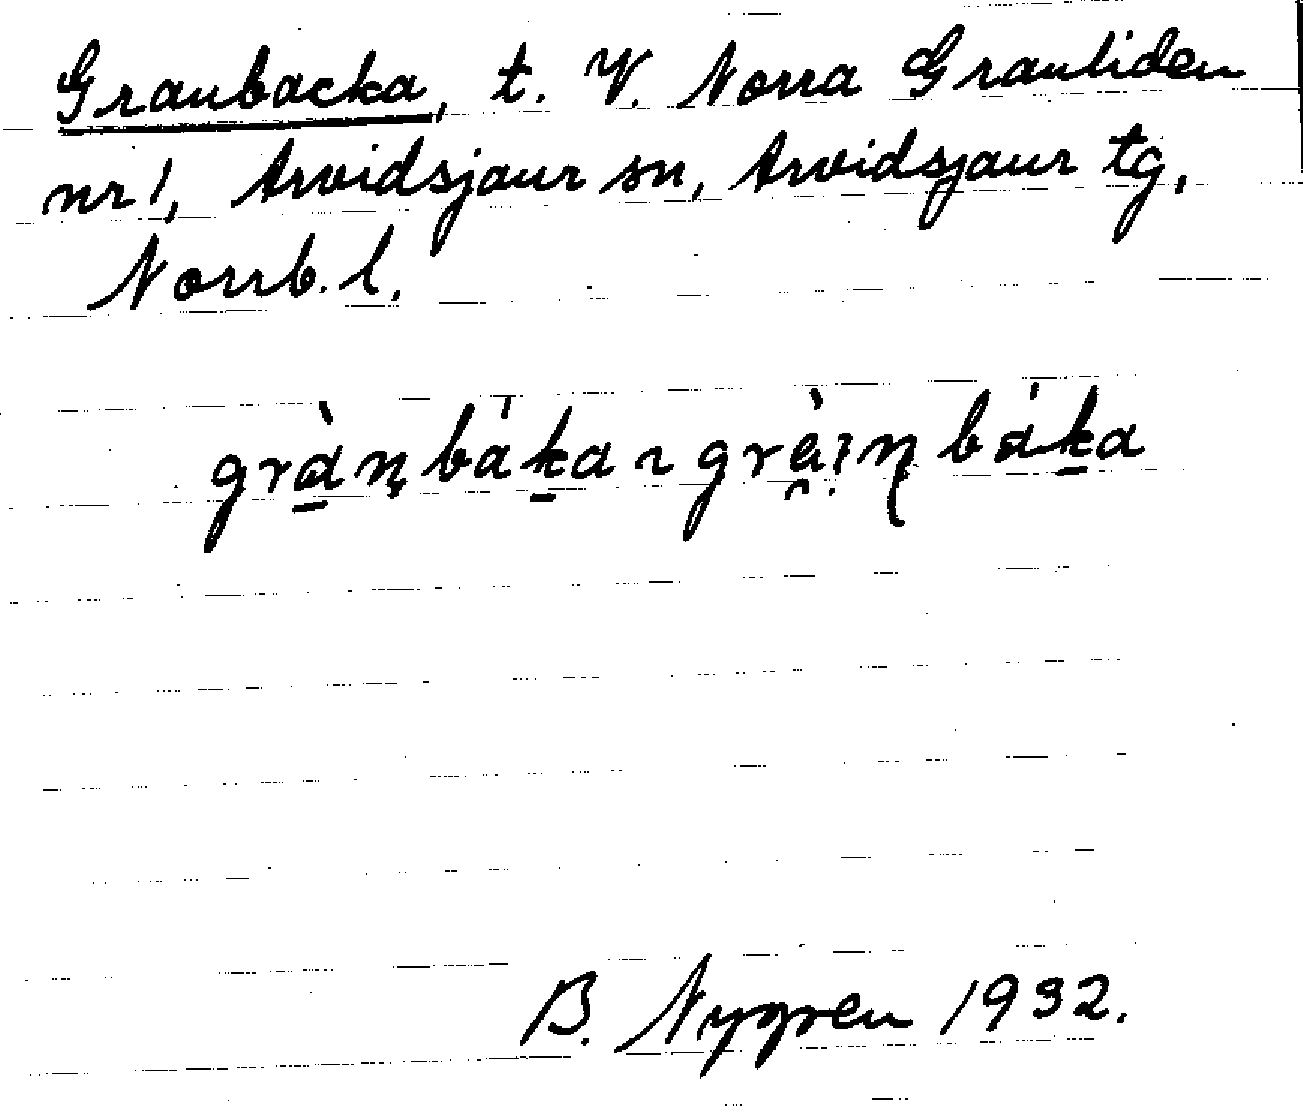 Granbacka, t. V. Norra Granliden
nr 1, Arvidsjaur sn, Arvidsjaur tg,
Norrb. l.
grà̱n̦bák̠a ~ grèi̯n̦bák̠a
B. Nygren 1932.